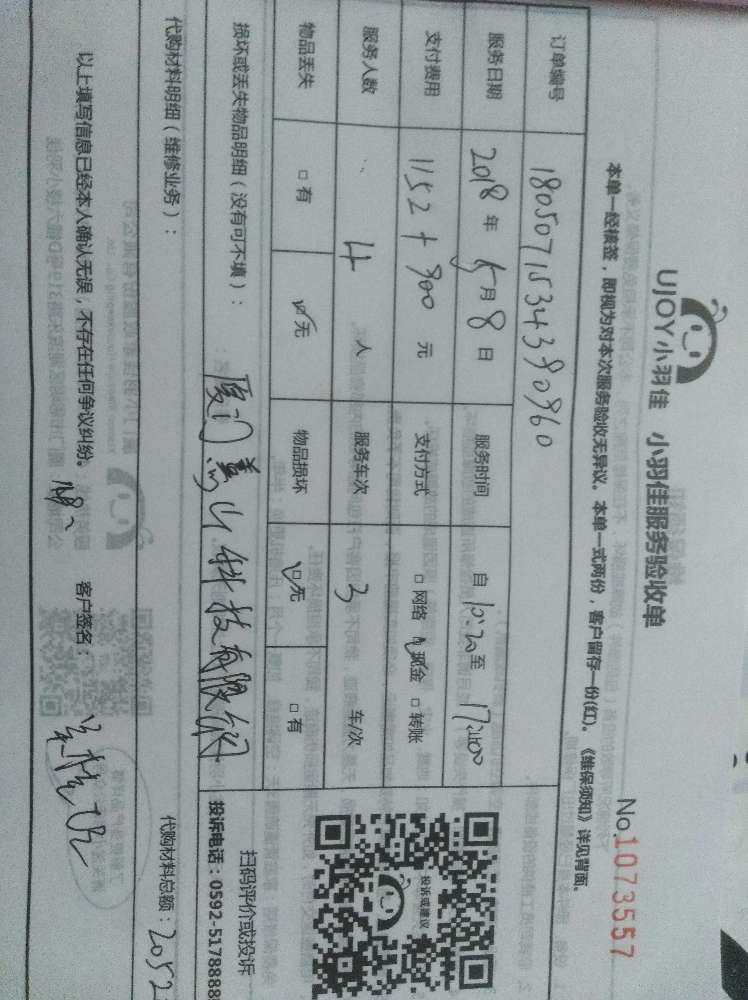 UJOY小羽佳 小羽佳服务验收单
No.1073557
本单一经核签，即视为对本次服务验收无异议。本单一式两份，客户留存一份(红)。《维保须知》详见背面。
订单编号 1805071534390960
服务日期 2018年5月8日 服务时间 自10:20至17:00
支付费用 1152+900元 支付方式 □网络 ☑现金 □转账
服务人数 4人 服务车次 3 车/次
物品丢失 □有 ☑无 物品损坏 ☑无 □有
投诉或建议
扫码评价或投诉
投诉电话：0592-5178888
损坏或丢失物品明细（没有可不填）：
厦门 山科技有限公司
代购材料明细（维修业务）： 代购材料总额：2052
以上填写信息已经本人确认无误，不存在任何争议纠纷。 客户签名：